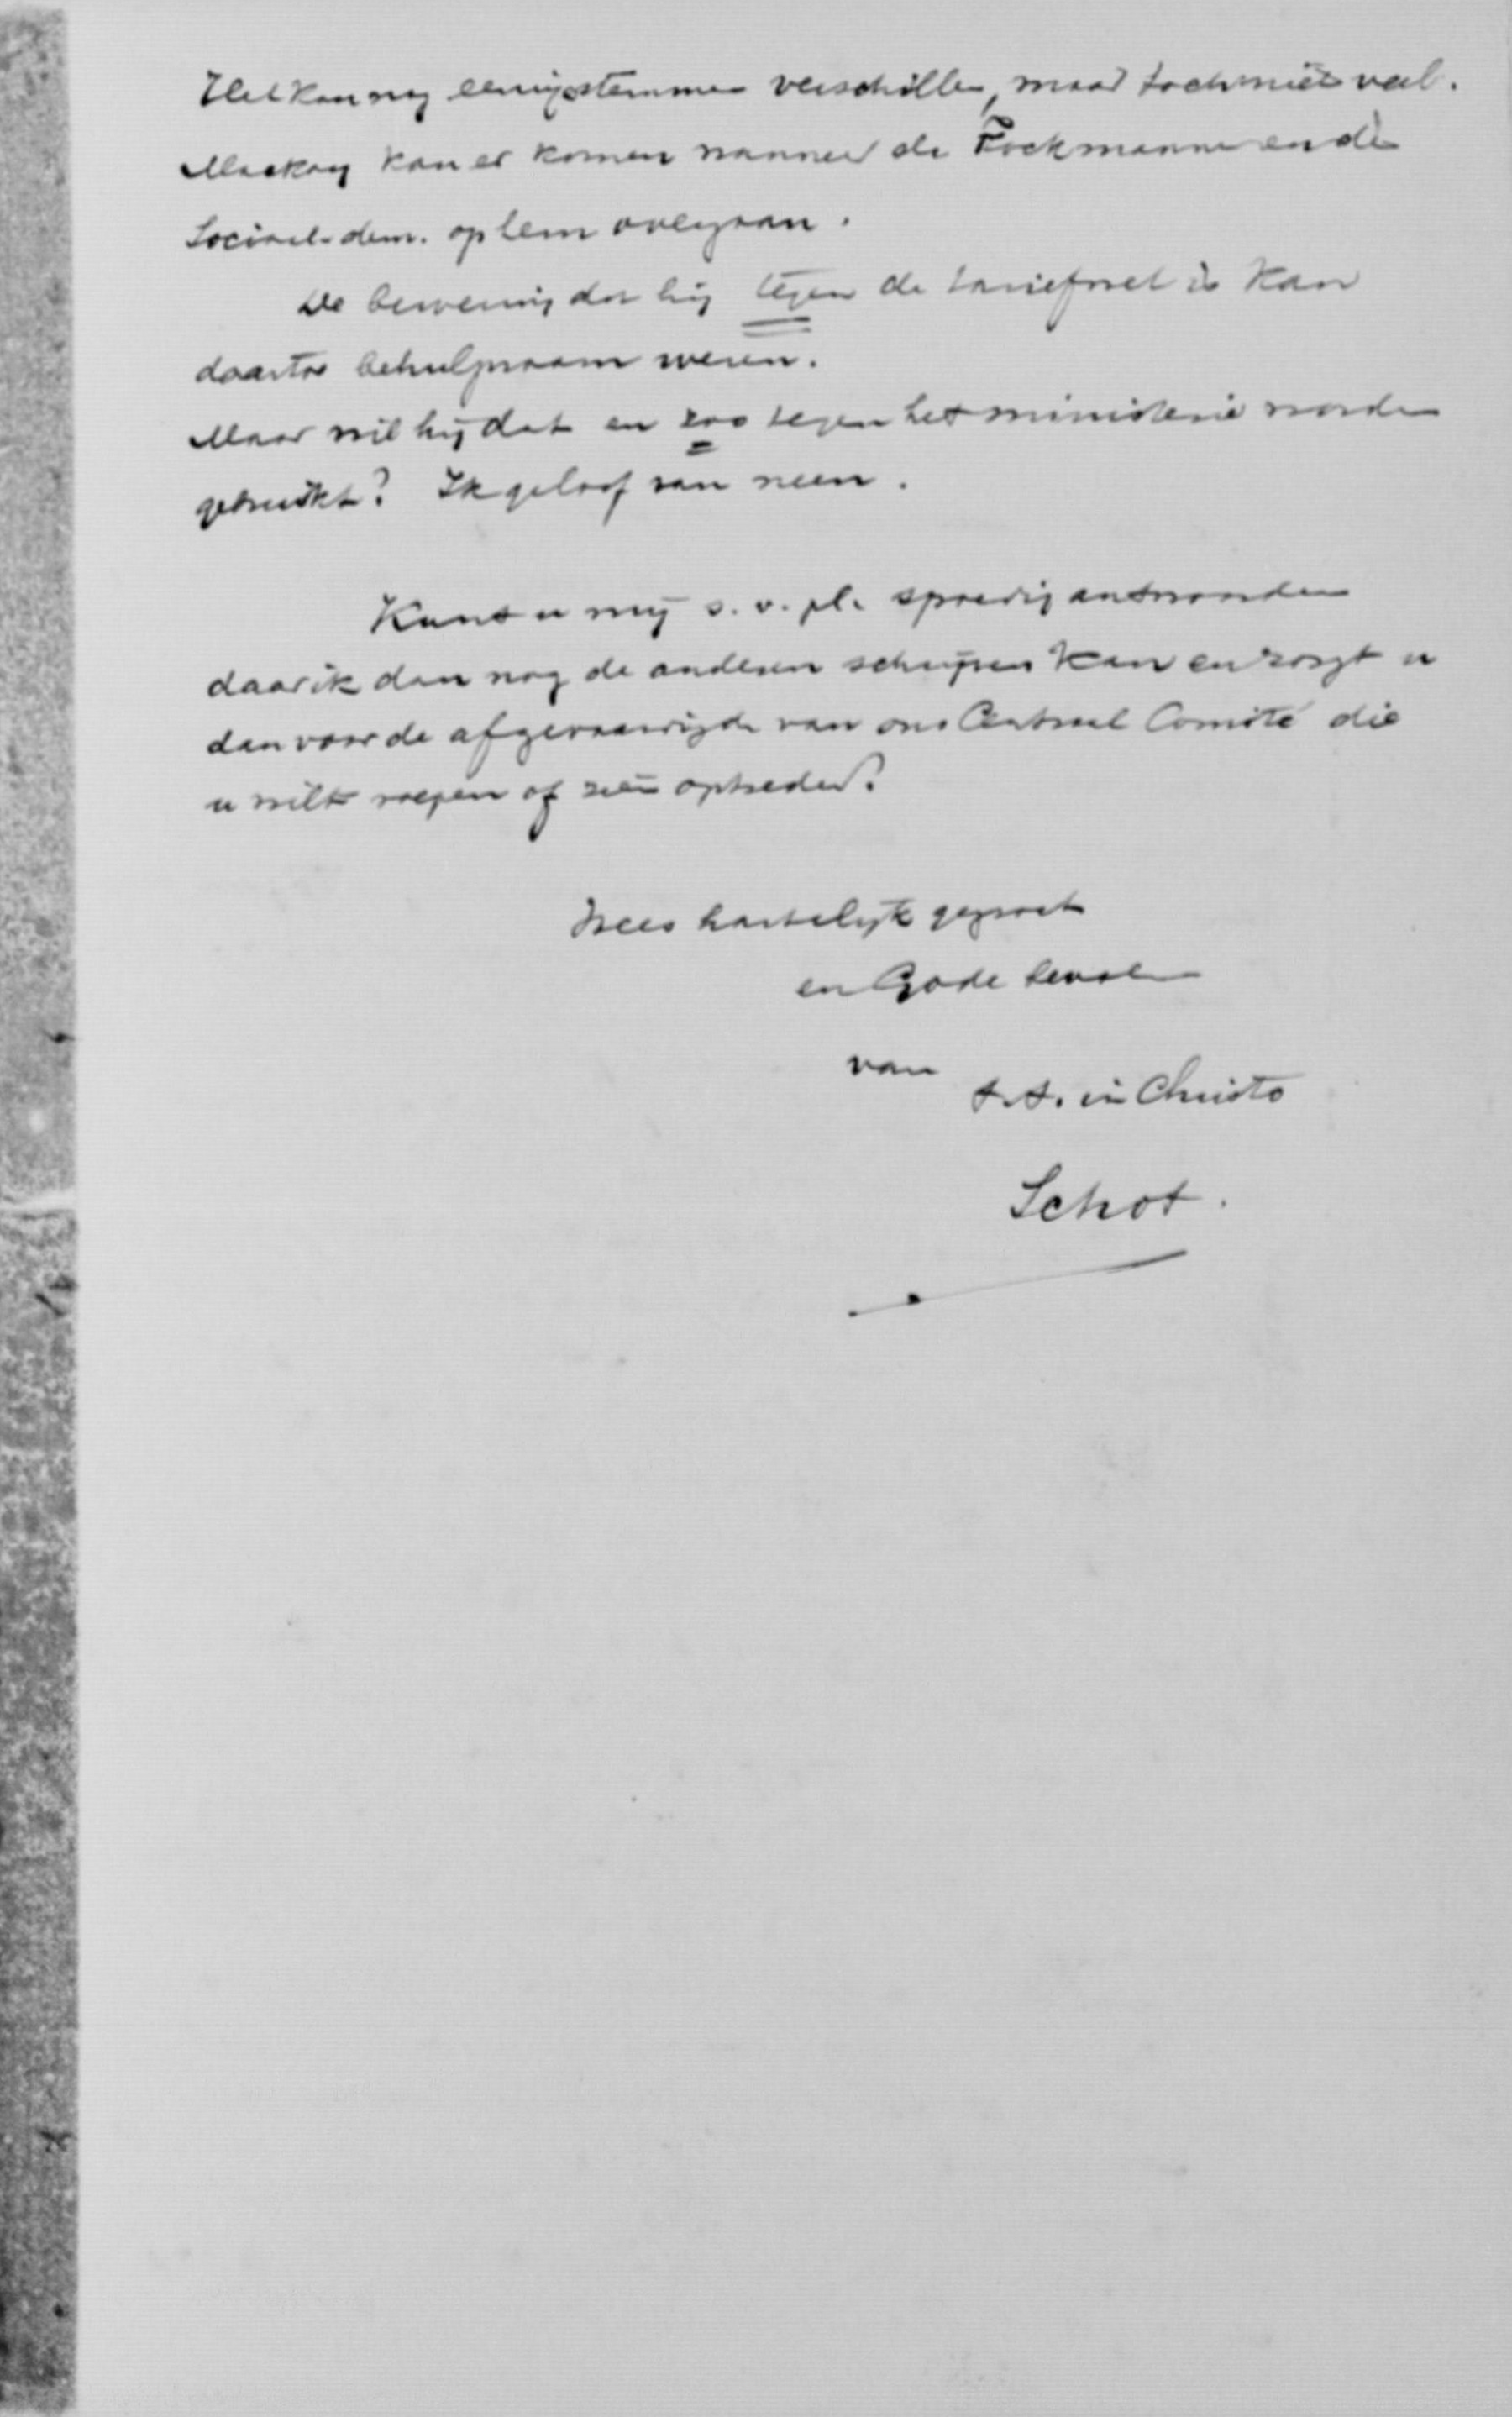 Het kan nog eenige stemmen verschillen, maar toch niet veel.
Mackay kan er komen wanneer de Fockmannen en de
Sociaal-dem. op hem overgaan.
De bewering dat hij tegen de tariefwet is kan
daartoe behulpzaam wezen.
Maar wil hij dat en zoo tegen het ministerie worden
gebruikt? Ik geloof van neen.
Kunt u mij s.v.pl. spoedig antwoorden
daar ik dan nog de anderen schrijven kan en zorgt u
dan voor de afgevaardigde van ons Centraal Comité die
u wilt roepen of zien optreden?
Wees hartelijk gegroet
en Gode bevolen
van
t.t. in Christo
Schot.